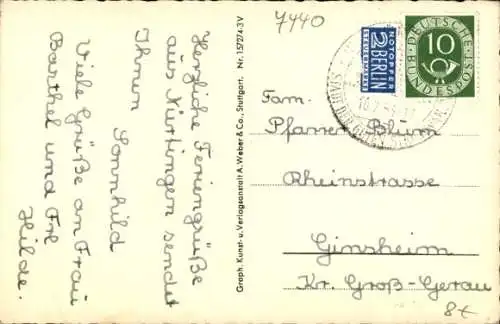 7440
Herzliche Feriengrüße
aus Nürtingen sendet
Ihnen
Sonnhild
Viele Grüße an Frau
Barthel und Frl
Hilde.
Graph. Kunst- u. Verlagsanstalt A. Weber & Co., Stuttgart. Nr. 15/274:3V
NOTOPFER
2 BERLIN
STEUERMARKE
DEUTSCHE
BUNDESPOST
10
Fam.
Pfarrer Blum
Rheinstrasse
Ginsheim
Kr. Groß-Gerau